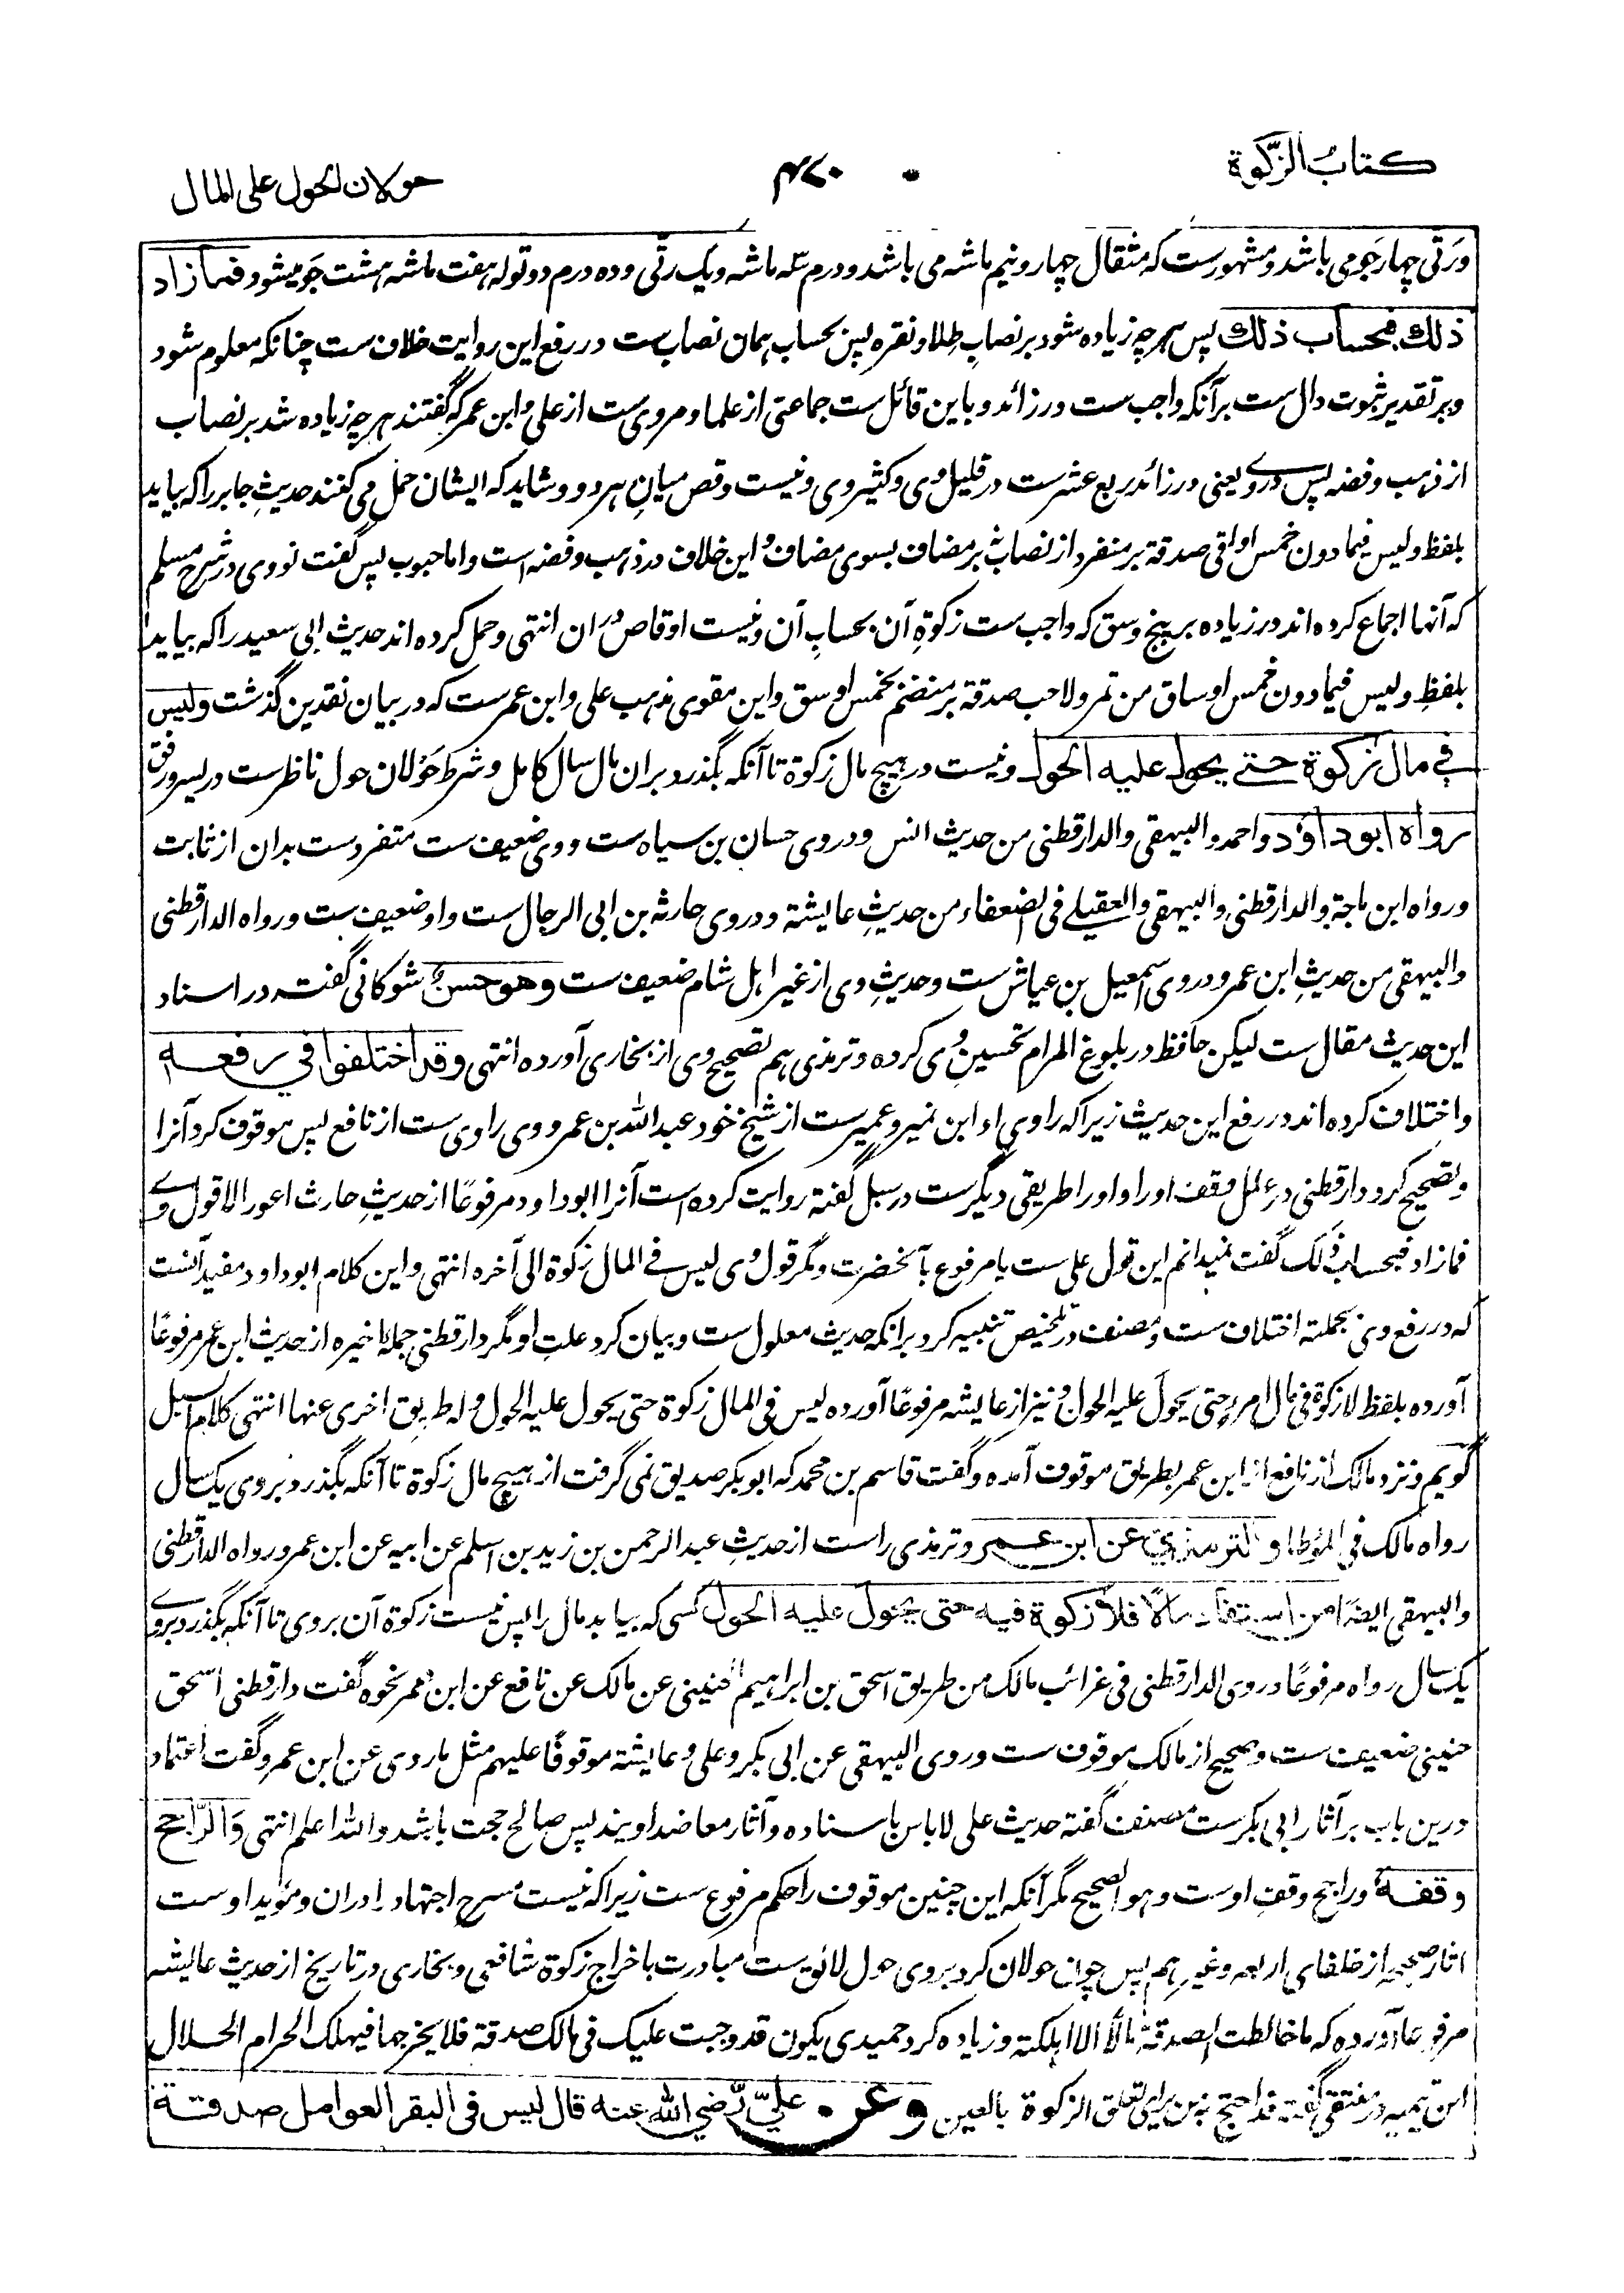 كتاب الزكوة
۴۷۰
حولان الحول على المال
ورتی چهار جو می باشد و مشهور ست که مثقال چهار و نیم ماشه می باشد و درم سه ماشه و یک رتی و ده درم دو توله هفت ماشه هشت جو میشود فما زاد
ذلك فبحساب ذلك پس هر چه زیاده شود بر نصاب طلا و نقره پس بحساب همان نصاب ست در رفع این روایت خلاف ست چنانکه معلوم شود
و بر تقدیر ثبوت دال ست بر آنکه واجب ست در زائد و باین قائل ست جماعتی از علما و مروی ست از علی و ابن عمر که گفتند هر چه زیاده شد بر نصاب
از ذهب و فضه پس دروے یعنی در زائد ربع عشر ست در قلیل وی و کثیر وی و نیست وقص میان هر دو و شاید که ایشان حمل می کنند حدیث جابر را که بیاید
بلفظ و لیس فیما دون خمس اواقی صدقة بر منفرد از نصاب بر مضاف بسوی مضاف و این خلاف در ذهب و فضه است و اما حبوب پس گفت نووی در شرح مسلم
که آنها اجماع کرده اند در زیاده بر پنج وسق که واجب ست زکوة آن بحساب آن و نیست اوقاص دران انتهی و حمل کرده اند حدیث ابی سعید را که بیاید
بلفظ و لیس فیما دون خمس اوساق من تمر ولا حب صدقة بر منضم بخمس اوسق و این مقوی مذهب علی و ابن عمر ست که در بیان نقدین گذشت ولیس
في مال زكوة حتے يحول عليه الحول و نیست در هیچ مال زکوة تا آنکه بگذرد بران مال سال کامل و شرط حولان حول ناظر ست در یسر و رفق
رواه ابو داؤد و احمد و البیهقی و الدارقطنی من حدیث انس و دروی حسان بن سیاه ست و وی ضعیف ست متفرد ست بدان از ثابت
و رواه ابن ماجة و الدارقطنی و البیهقی و العقیلے فی الضعفاء من حدیث عایشة و دروی حارثه بن ابی الرجال ست و او ضعیف ست و رواه الدارقطنی
و البیهقی من حدیث ابن عمر و دروی اسمعیل بن عیاش ست و حدیث وی از غیر اهل شام ضعیف ست وهو حسن شوکانی گفته در اسناد
این حدیث مقال ست لیکن حافظ در بلوغ المرام تحسین وی کرده و ترمذی هم تصحیح وی از بخاری آورده انتهی وقد اختلفوا في رفعه
و اختلاف کرده اند در رفع این حدیث زیرا که راوی او ابن نمیر و عمیر ست از شیخ خود عبد الله بن عمر و وی راوی ست از نافع پس موقوف کرد آنرا
و تصحیح کرد دارقطنی در علل وقف او را و او را طریقی دیگر ست در سبل گفته روایت کرده است آنرا ابوداود مرفوعًا از حدیث حارث اعور الا قول وے
فما زاد فبحساب ذلک گفت نمیدانم این قول علی ست یا مرفوع بآنحضرت و مگر قول وی لیس فے المال زکوة الی آخره انتهی و این کلام ابوداود مفید آنست
که در رفع وی بجملته اختلاف ست و مصنف در تلخیص تنبیه کرد بر آنکه حدیث معلول ست و بیان کرد علت او مگر دارقطنی جملهٔ اخیره از حدیث ابن عمر مرفوعًا
آورده بلفظ لا زکوة فی مال امرء حتی یحول علیه الحول و نیز از عایشه مرفوعًا آورده لیس فی المال زکوة حتی یحول علیه الحول وله طریق اخری عنها انتهی کلام السبل
گویم و نزد مالک از نافع از ابن عمر بطریق موقوف آمده و گفت قاسم بن محمد که ابو بکر صدیق نمی گرفت از هیچ مال زکوة تا آنکه بگذرد بروی یک سال
رواه مالک فی الموطا و الترمذي عن ابن عمر و ترمذی راست از حدیث عبد الرحمن بن زید بن اسلم عن ابیه عن ابن عمر و رواه الدارقطنی
و البیهقی ایضًا من استفاد مالًا فلا زكوة فيه حتى يحول عليه الحول کسی که بیابد مال را پس نیست زکوة آن بروی تا آنکه بگذرد برو
یک سال رواه مرفوعًا و روی الدارقطنی فی غرائب مالک من طریق اسحق بن ابراهیم الحنینی عن مالک عن نافع عن ابن عمر نحوه گفت دارقطنی اسحق
حنینی ضعیف ست و صحیح از مالک موقوف ست و روی البیهقی عن ابی بکر و علی و عایشة موقوفًا علیهم مثل ما روی عن ابن عمر و گفت اعتماد
درین باب بر آثار ابی بکر ست مصنف گفته حدیث علی لا باس باسناده و آثار معاضد اویند پس صالح حجت باشد والله اعلم انتهی والراجح
وقفه و راجح وقف اوست و هو الصحیح مگر آنکه این چنین موقوف را حکم مرفوع ست زیرا که نیست مسرح اجتهاد را دران و مؤید اوست
اثار صحیحه از خلفای اربعه و غیرهم پس چون حولان کرد بروی حول لائق ست مبادرت باخراج زکوة شافعی و بخاری در تاریخ از حدیث عایشه
مرفوعًا آورده که ما خالطت الصدقة مالًا الا اهلکته و زیاده کرد حمیدی یکون قد وجبت علیک فی مالک صدقة فلا یخرجها فیهلک الحرام الحلال
ابن تیمیه در منتقی گفته قد احتج به من یری تعلق الزکوة بالعین وعن علي رضي الله عنه قال ليس في البقر العوامل صدقة